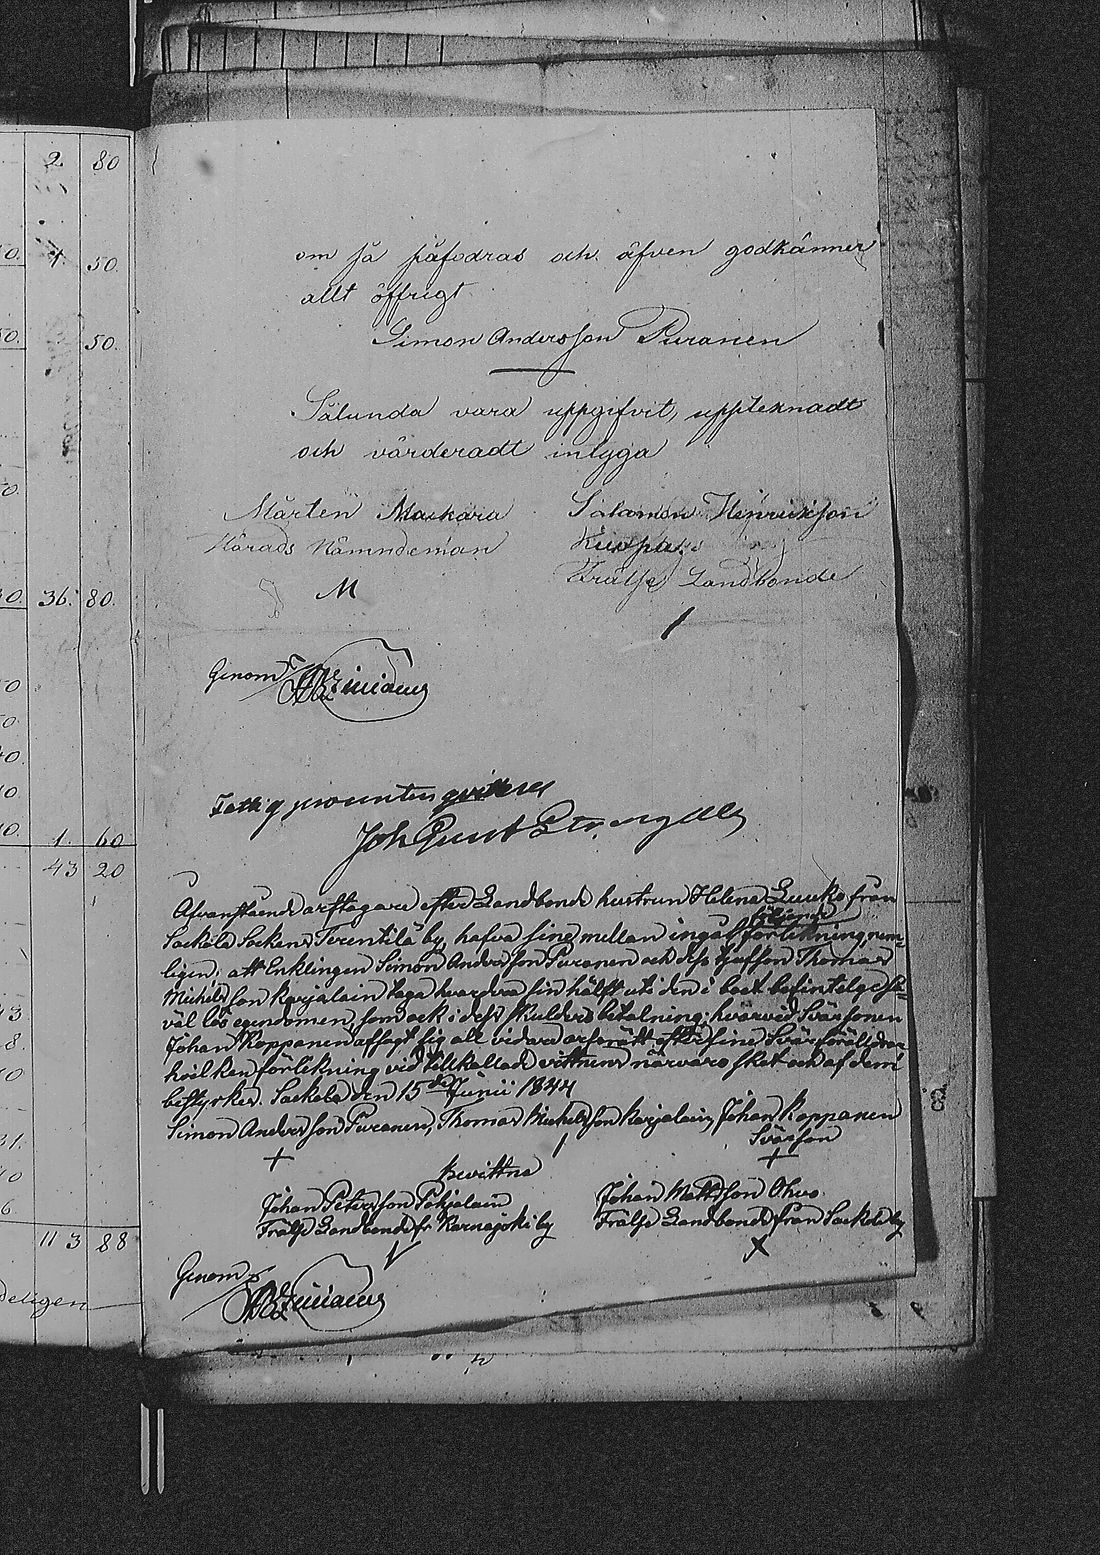 2 80
4. 50.
50.
36. 80.
1. 60
43 20
113 88
deligen
om så påfodras och äfven godkänner
allt öffrigt
Simon Andersson Puranen
Sålunda vara uppgifvit, uppteknadt
och värderadt intyga
Mårten Mackara
Härads Nämndeman
M
Salamon Henriksson
Kuappa
Frälse Landbonde
Genom
Fattig procenten qvitterad
Afvanstående arftagare efter Landbonde hustrun Helena Luuko från
Sackola Sockens Terentilä by, hafva sine mellan ingåt följande förlikning, nem-
ligen: att Enklingen Simon Andersson Puranen och dess Thomas
Michelsson Karjalain taga hvardera sin hälft uti den i boet befintelige så-
väl lös egendomen, som ock i dess skulders betalning; hvarvid Svärsonen
Johan Koppanen afsagt sig all vidare arfsrätt efter sine Svärföräldrar
hvilken förlikning vid tillkallade vittnens närvaro sket och af dem
bestyrkes. Sackola den 15de Junii 1844
Simon Andersson Puranen, Thomas Michelsson Karjalain, Johan Koppanen
Svärson
Bevittna
Johan Petersson Pohjalain
Frälse Landbonde fr. Karnajoki by
Johan Mattsson Ohvo
Frälse Landbonde från Sackola by
X
Genom